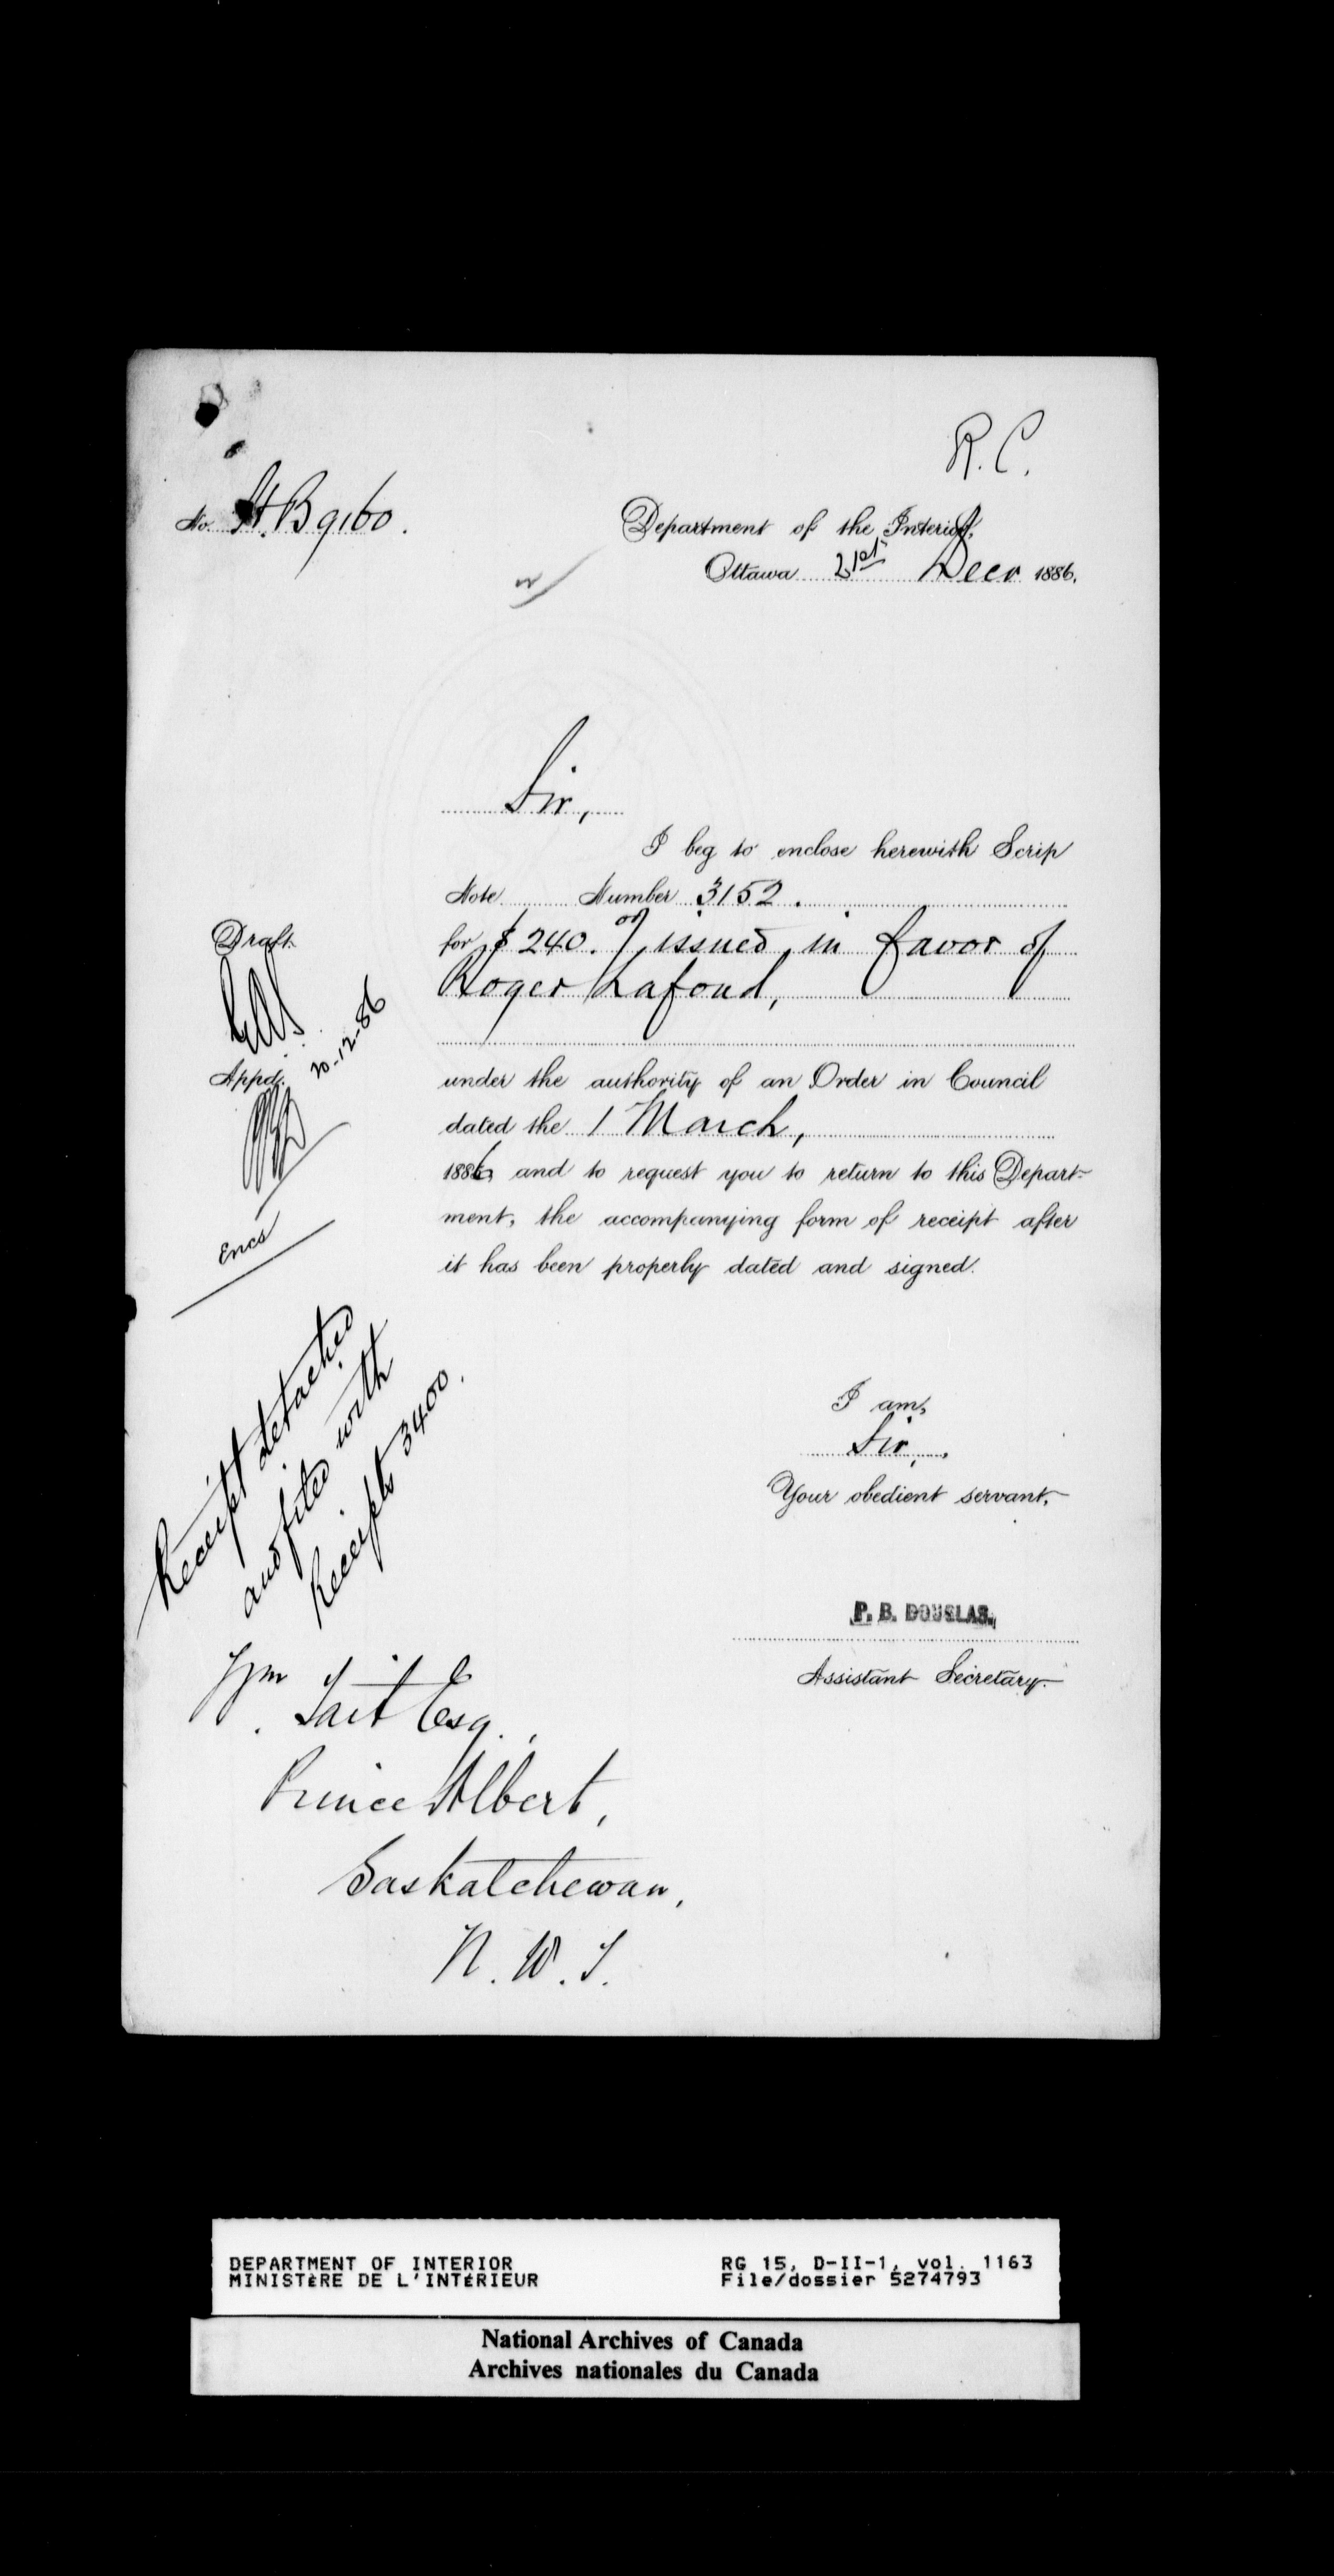 R. C.
No. H.B 9160.
Department of the Interior,
Ottawa 21st Decr 1886.
Sir,
I beg to enclose herewith Scrip
Note Number 3152.
for $240.00/ issued in favor of
Roger Lafond,
under the authority of an Order in Council
dated the 1 March,
1886, and to request you to return to this Depart-
ment, the accompanying form of receipt after
it has been properly dated and signed.
Draft.
20-12-86
Appd.
Encs
Receipt detached
and filed with
Receipts 3400.
I am,
Sir,
Your obedient servant,
P. B. DOUGLAS,
Assistant Secretary.
Wm Tait Esq.,
Prince Albert,
Saskatchewan,
N. W. T.
DEPARTMENT OF INTERIOR
MINISTÈRE DE L'INTÉRIEUR
RG 15, D-II-1, vol. 1163
File/dossier 5274793
National Archives of Canada
Archives nationales du Canada